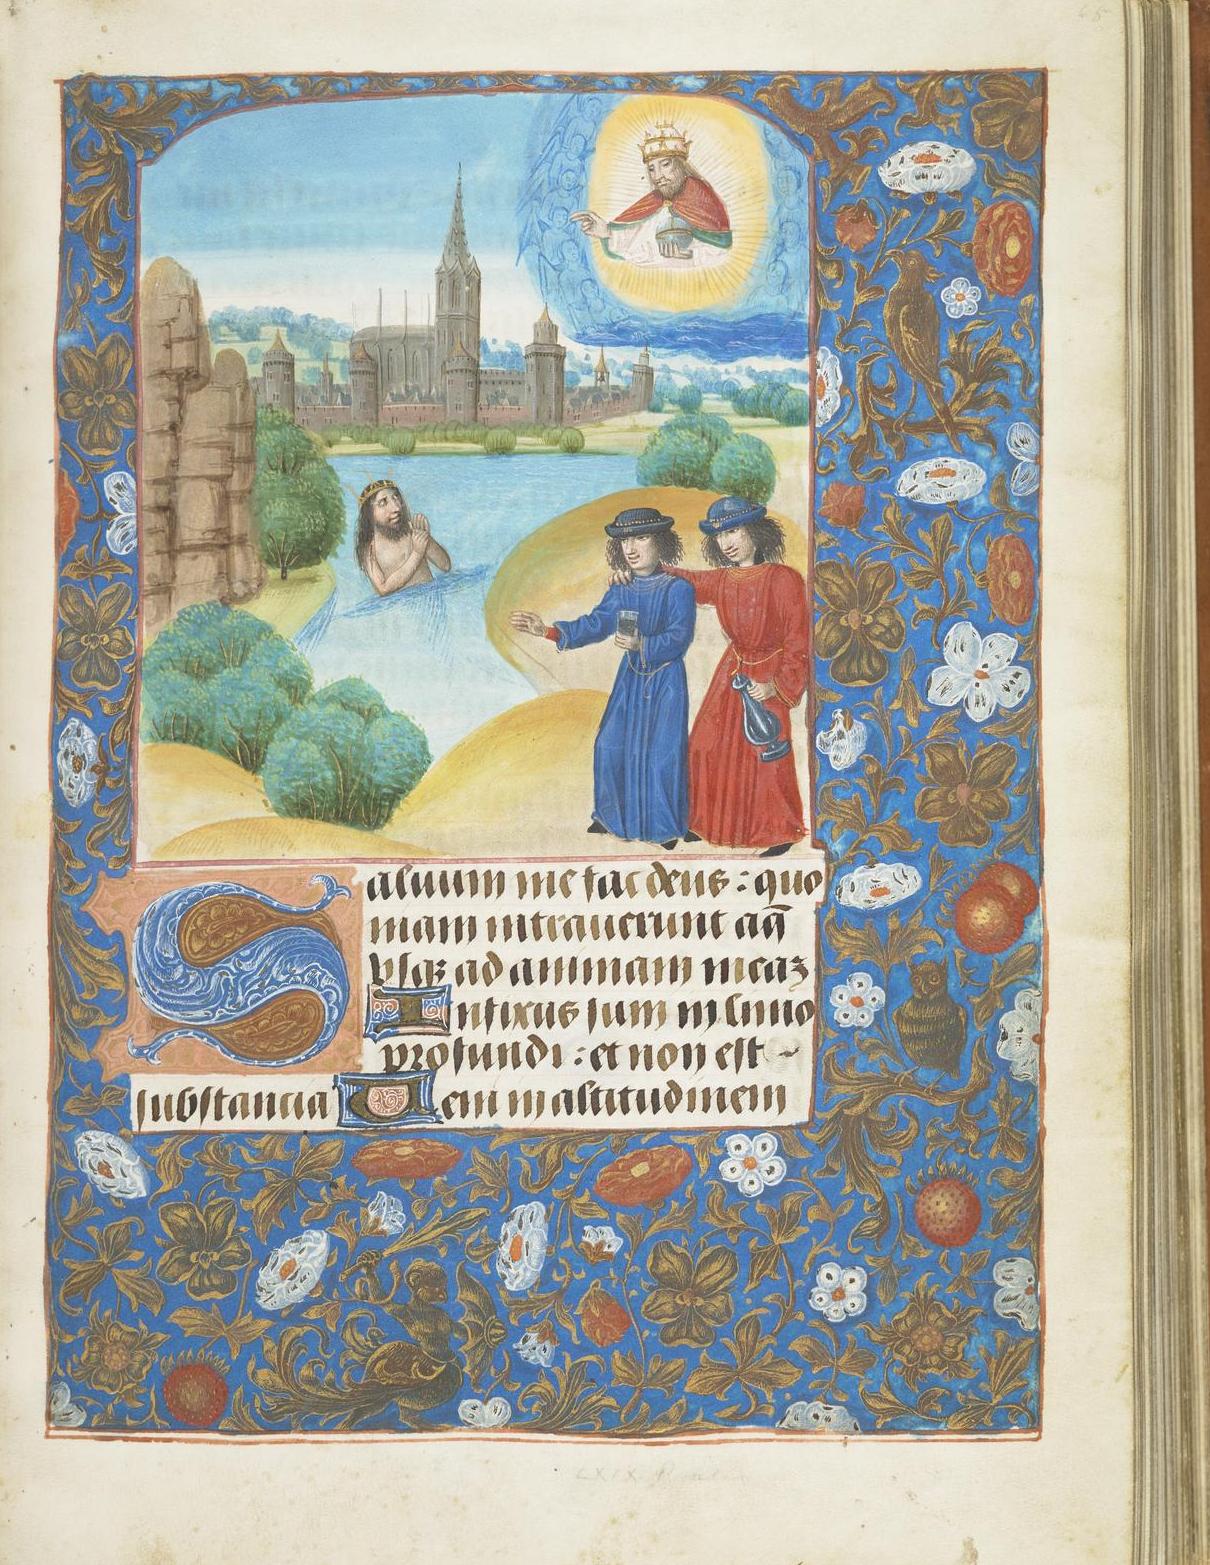 Saluum me fac deus : quo
niam intrauerunt aq̄
vsqz ad animam meaz
Infixus sum in limo
profundi : et non est
substancia Veni in altitudinem
LXIX